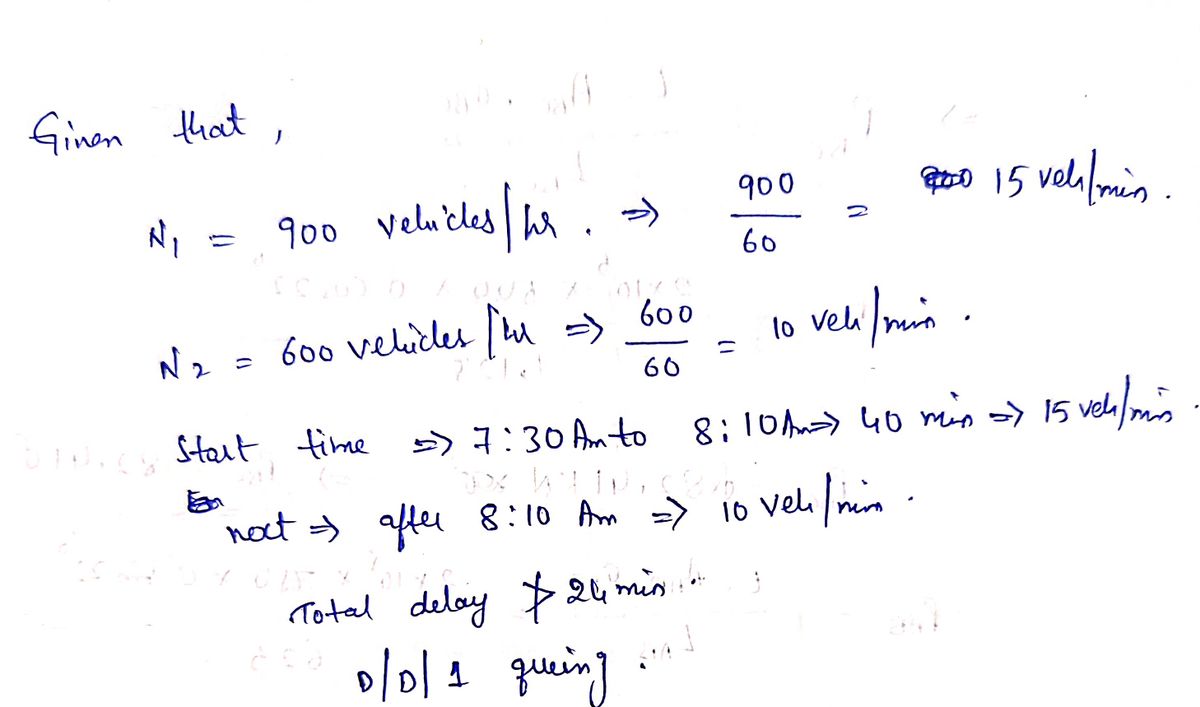 Given that,
N1 = 900 vehicles/hr. ⇒ 900/60 = 15 veh/min.
N2 = 600 vehicles/hr ⇒ 600/60 = 10 veh/min.
Start time ⇒ 7:30 Am to 8:10 Am ⇒ 40 min ⇒ 15 veh/min.
next ⇒ after 8:10 Am ⇒ 10 veh/min.
Total delay ≯ 24 min.
D/D/1 queing.